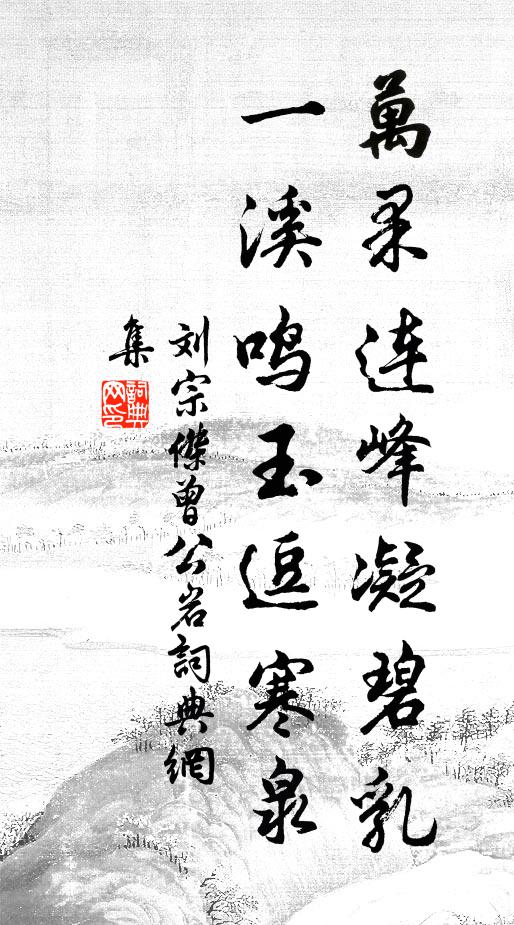 萬連峰凝碧乳
一溪鳴玉逗寒泉
刘宗傑曾公岩詞典網
集
詞典网印